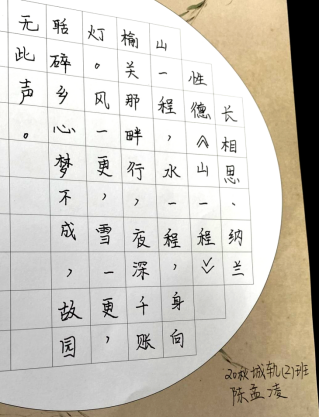 长相思、纳兰
性德《山一程》
山一程,水一程,身向
榆关那畔行,夜深千账
灯。风一更,雪一更,
聒碎乡心梦不成,故园
无此声。
20秋城轨(2)班
陈孟凌